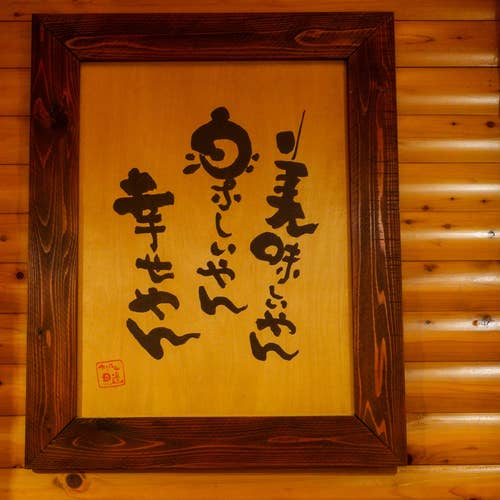 美味しいやん
楽しいやん
幸せやん